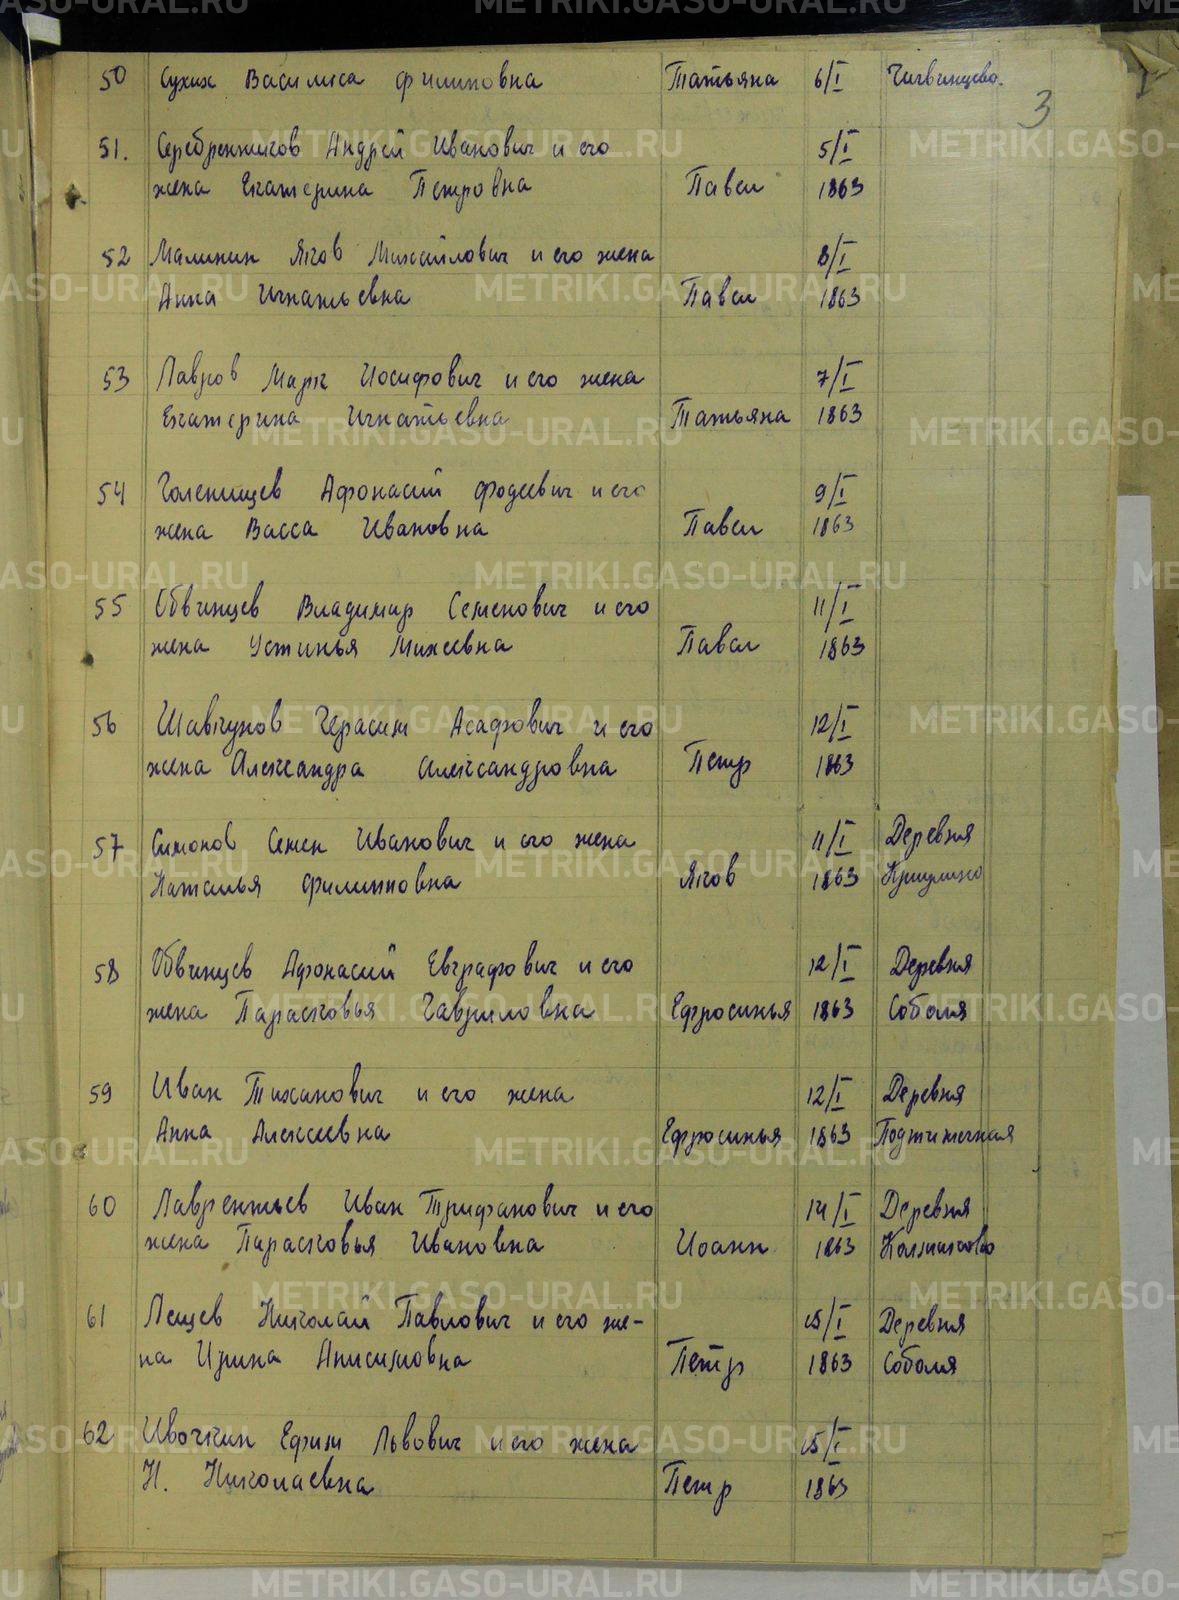 3
50 Сухих Василиса Филиповна Татьяна 6/I Чигвинцево.
51. Серебренников Андрей Иванович и его 5/I
жена Екатерина Петровна Павел 1863
52 Малинин Яков Михайлович и его жена 8/I
Анна Игнатьевна Павел 1863
53 Лавров Марк Иосифович и его жена 7/I
Екатерина Игнатьевна Татьяна 1863
54 Голенищев Афонасий Фодеевич и его 9/I
жена Васса Ивановна Павел 1863
55 Обвинцев Владимир Семенович и его 11/I
жена Устинья Михеевна Павел 1863
56 Шавкунов Герасим Асафович и его 12/I
жена Александра Александровна Петр 1863
57 Симонов Семен Иванович и его жена 11/I Деревня
Наталья Филипповна Яков 1863 Криулино
58 Обвинцев Афонасий Евграфович и его 12/I Деревня
жена Парасковья Гавриловна Ефросинья 1863 Соболя
59 Иван Тиханович и его жена 12/I Деревня
Анна Алексеевна Ефросинья 1863
60 Лаврентьев Иван Трифанович и его 14/I Деревня
жена Парасковья Ивановна Иоанн 1863 Калмаково
61 Лещев Николай Павлович и его же-
15/I Деревня
на Ирина Анисимовна Петр 1863 Соболя
62 Ивочкин Ефим Львович и его жена 15/I
Н. Николаевна Петр 1863
METRIKI.GASO-URAL.RU